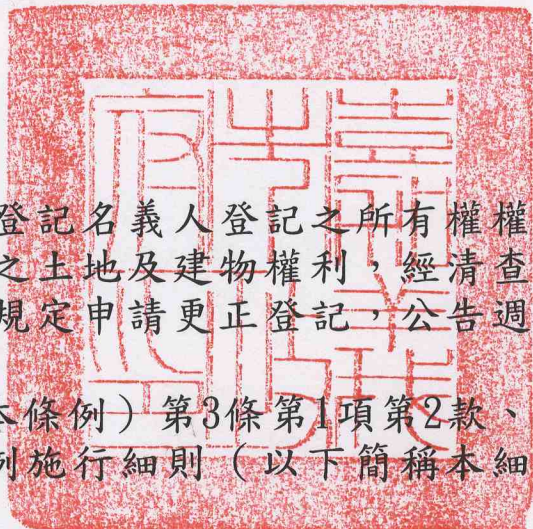 登記名義人登記之所有權權
之土地及建物權利，經清查
規定申請更正登記，公告週
本條例）第3條第1項第2款、
例施行細則（以下簡稱本細